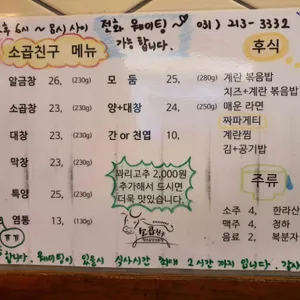 6시 ~ 8시 사이 전화 웨이팅~ 031) 213-3332
가능 합니다.
소곱친구 메뉴
알곱창 26, (230g)
소곱창 23, (230g)
대창 23, (230g)
막창 23, (230g)
특양 25, (230g)
염통 13, (130g)
모 둠 25, (280g)
양+대창 24, (250g)
간 or 천엽 10,
꽈리고추 2,000원
추가해서 드시면
더욱 맛있습니다.
후식
계란 볶음밥
치즈+계란 볶음밥
매운 라면
짜파게티
계란찜
김+공기밥
주류
소주 4, 한라산
맥주 4, 청하
음료 2, 복분자
합니다. 웨이팅이 있을시 식사시간 최대 2시간 까지 입니다.